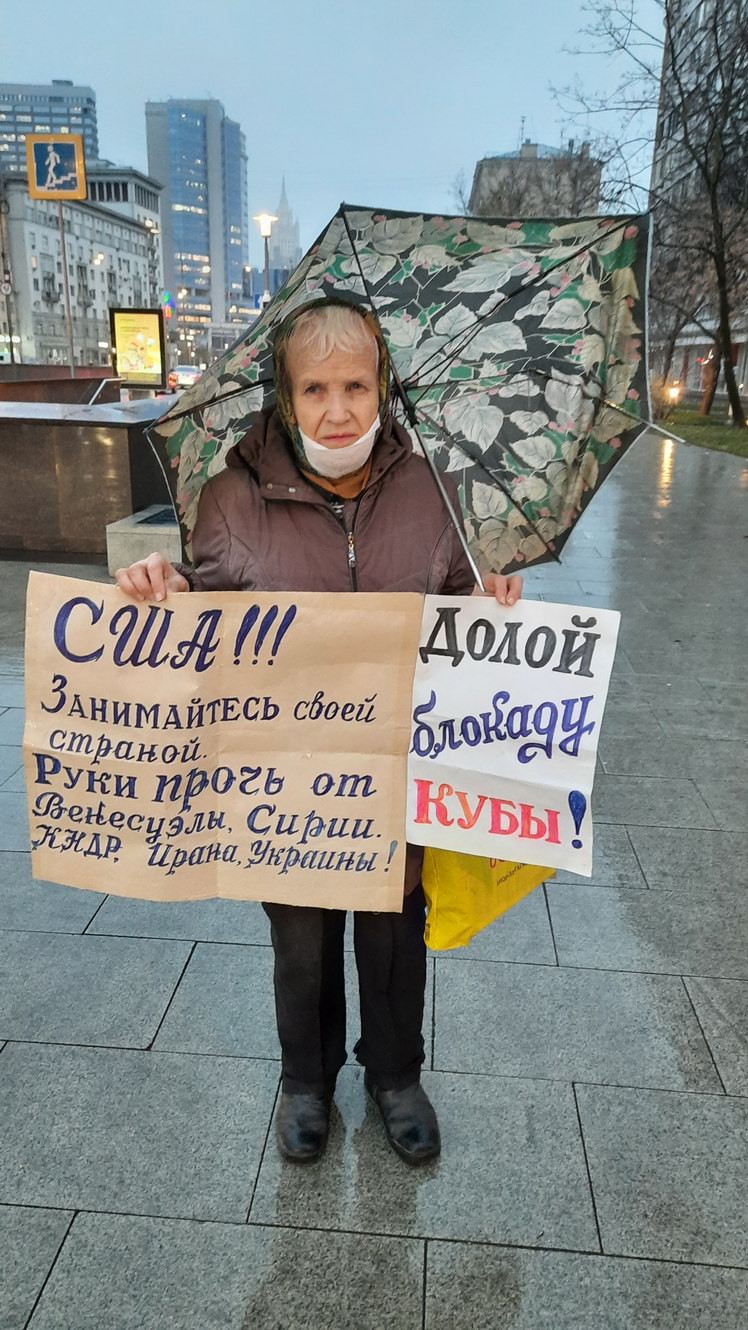 США!!!
Занимайтесь своей
страной.
Руки прочь от
Венесуэлы, Сирии.
КНДР, Ирана, Украины!
Долой
блокаду
Кубы!